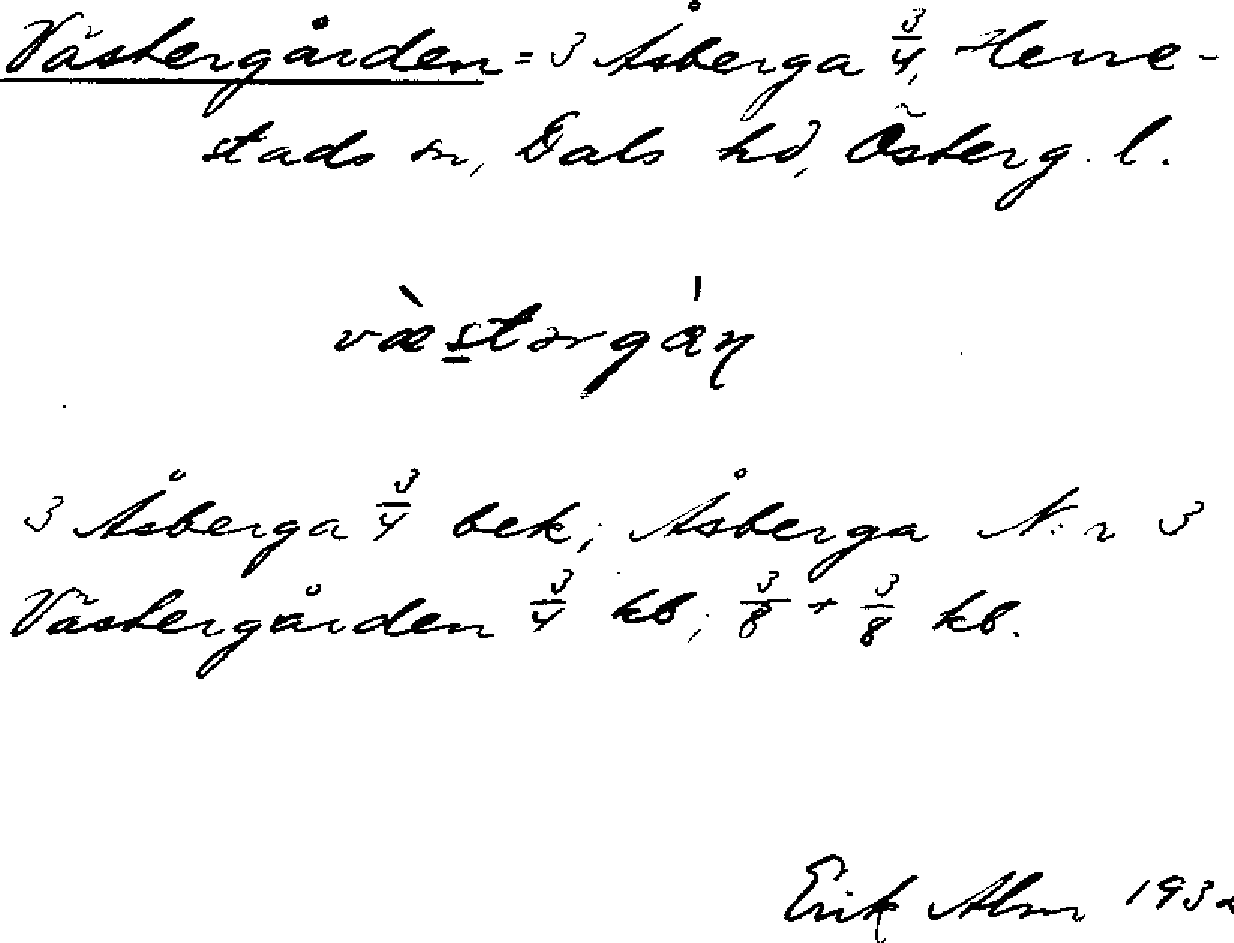 Västergården = 3 Åsberga 3/4, Herre-
stads sn, Dals hd, Österg. l.
væstərgán
3 Åsberga 3/4 bek; Åsberga N:r 3
Västergården 3/4 kb; 3/8 + 3/8 kb.
Erik Alm 1932